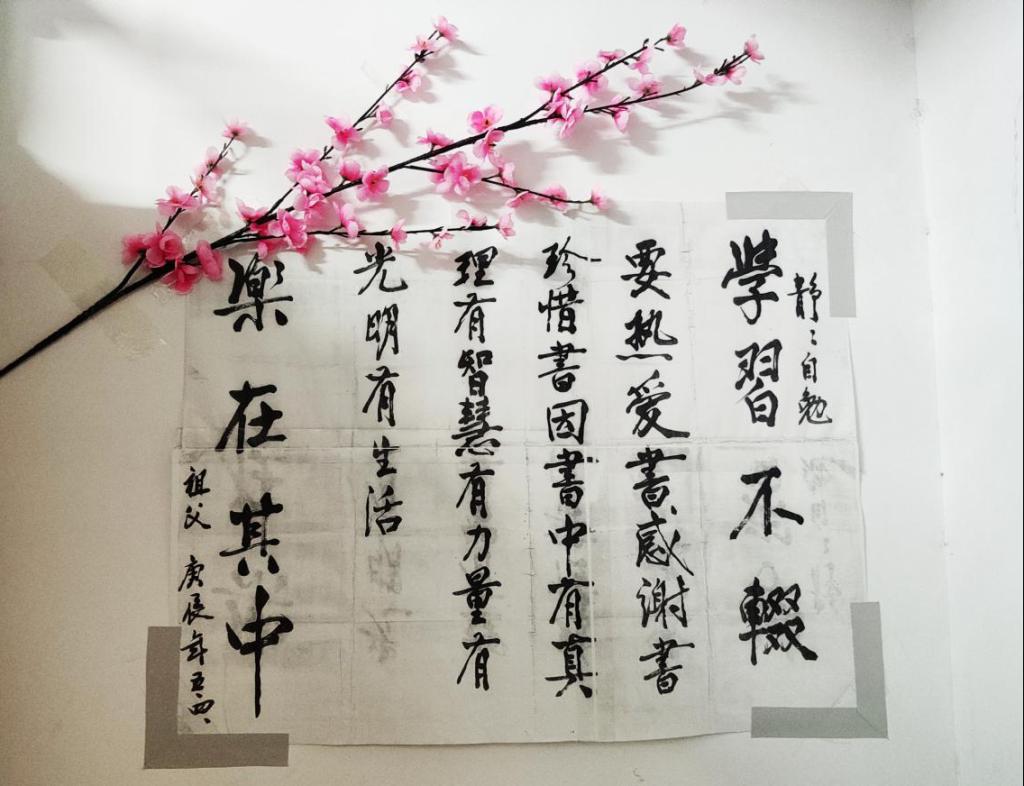 静〻自勉
學習不輟
要热爱書感谢書
珍惜書因書中有真
理有智慧有力量有
光明有生活
樂在其中
祖父 庚辰年五.四.